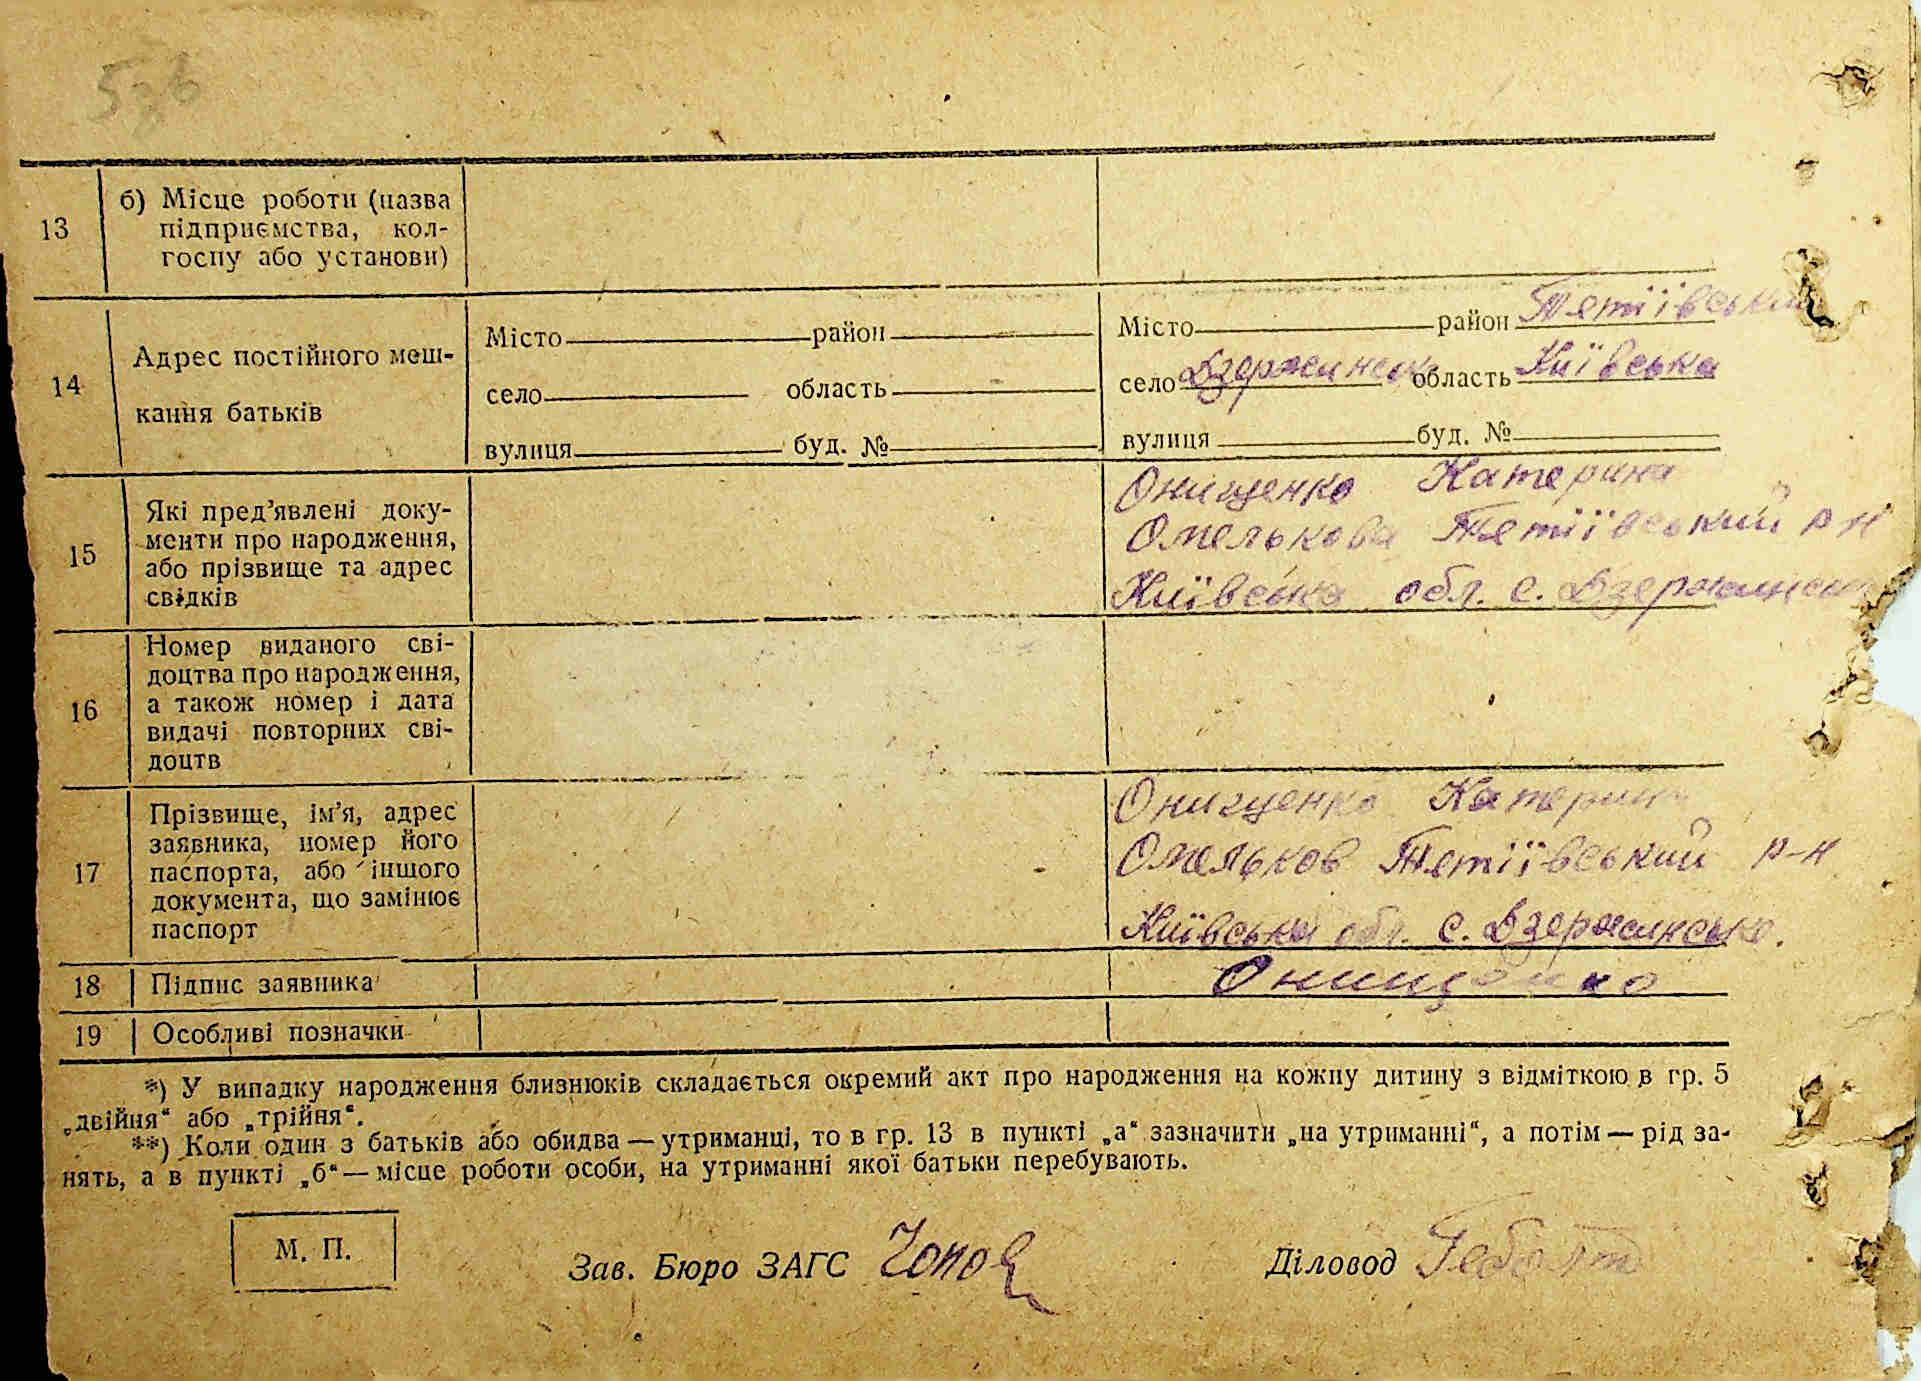 13
б) Місце роботи (назва
підприємства, кол-
госпу або установи)
14
Адрес постійного меш-
кання батьків
Місто район
село область
вулиця буд. №
Місто район Тетіївський
село Дзержинськ область Київська
вулиця буд. №
15
Які пред’явлені доку-
менти про народження,
або прізвище та адрес
свідків
Онищенко Катерина
Омелькова Тетіївський р-н
Київська обл. с. Дзержинськ
16
Номер виданого сві-
доцтва про народження,
а також номер і дата
видачі повторних сві-
доцтв
17
Прізвище, ім’я, адрес
заявника, номер його
паспорта, або іншого
документа, що замінює
паспорт
Онищенко Катерина
Омельков Тетіївський р-н
Київська обл. с. Дзержинське.
18
Підпис заявника
Онищенко
19
Особливі позначки
*) У випадку народження близнюків складається окремий акт про народження на кожну дитину з відміткою в гр. 5
„двійня“ або „трійня“.
**) Коли один з батьків або обидва — утриманці, то в гр. 13 в пункті „а“ зазначити „на утриманні“, а потім — рід за-
нять, а в пункті „б“ — місце роботи особи, на утриманні якої батьки перебувають.
М. П.
Зав. Бюро ЗАГС
Діловод